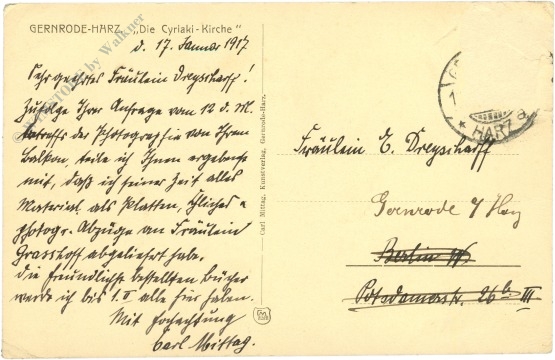 GERNRODE-HARZ. „Die Cyriaki-Kirche"
d. 17. Januar 1917
Sehr geehrtes Fräulein Dreyscharff!
Zufolge Ihrer Anfrage vom 12 d. M.
betreffs der Photographie von Ihrem
Balkon, teile ich Ihnen ergebenst
mit, daß ich seiner Zeit alles
Material als Platten, &
photogr. Abzüge an Fräulein
Grasshoff abgeliefert habe.
Die freundlichst bestellten Bücher
werde ich bis 1.II alle hier haben.
Mit Hochachtung
Carl Mittag.
Carl Mittag, Kunstverlag, Gernrode-Harz.
* HARZ a
Fräulein E. Dreyscharff
Gernrode a/Harz
Berlin W
Potsdamerstr. 26b III
by Walkner